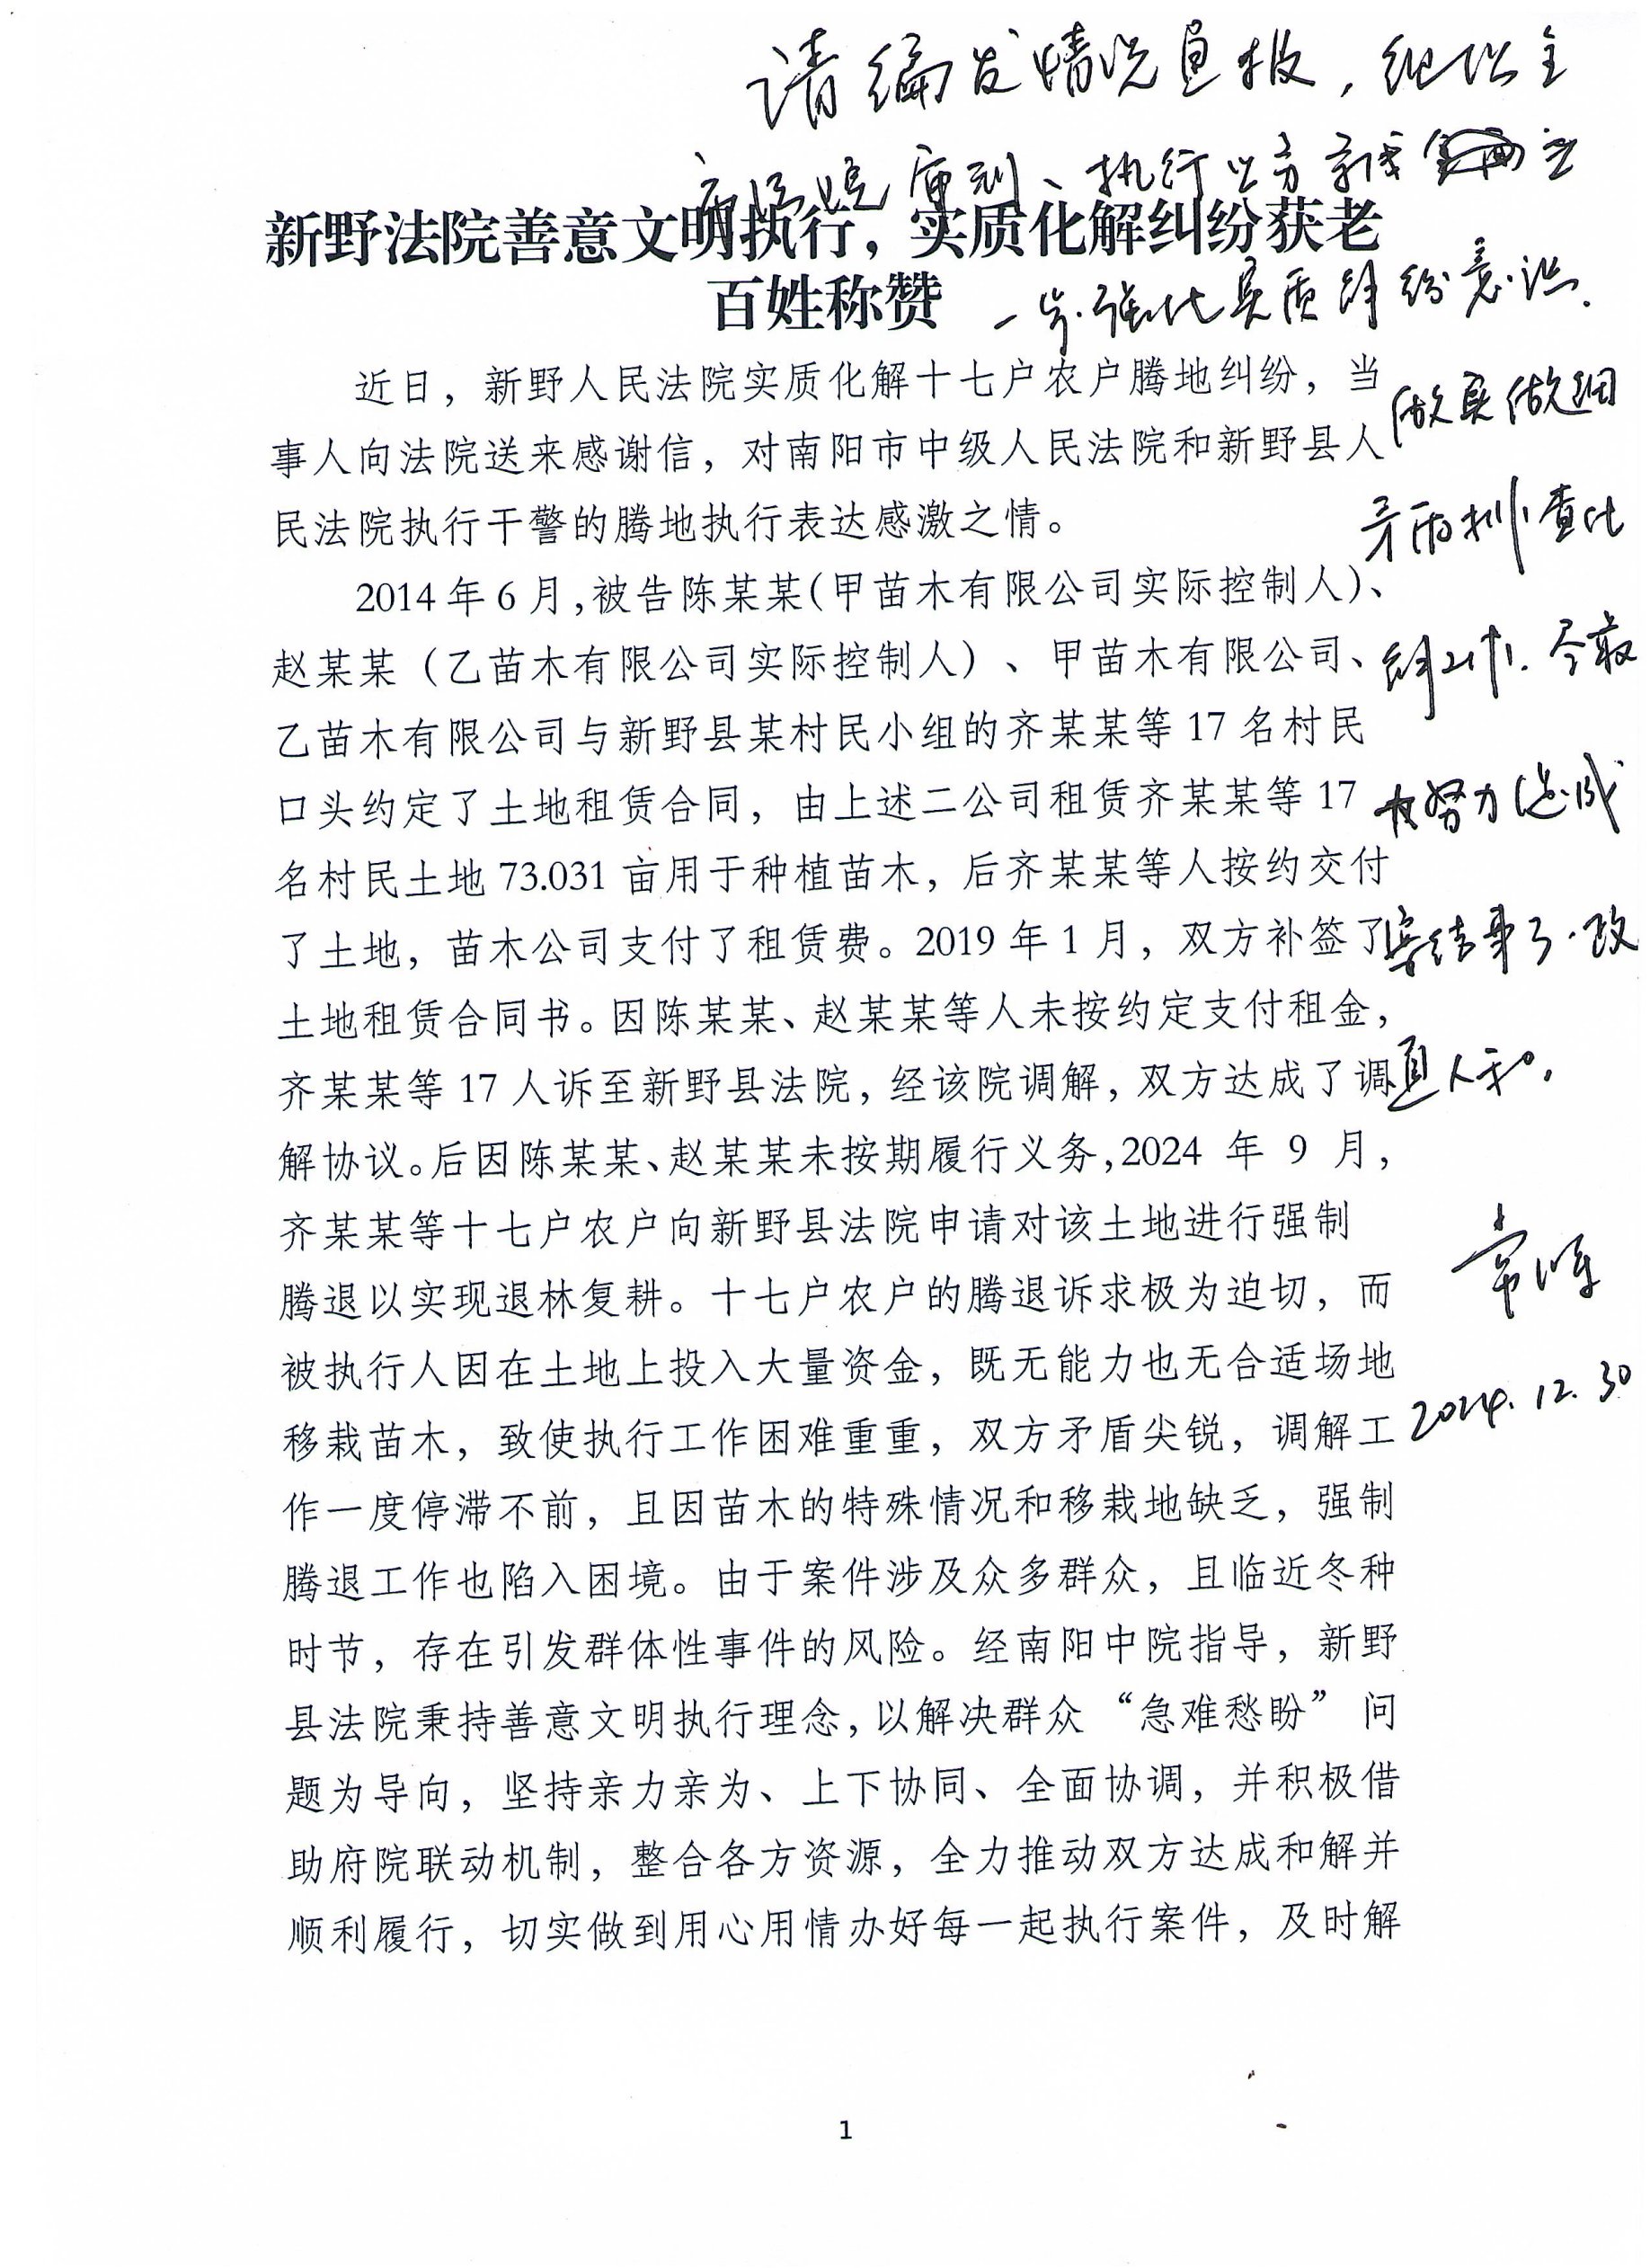 请编发情况直报,
审判、执行
新野法院善意文明执行，实质化解纠纷获老
百姓称赞
一步强化实质解纷意识.
做实做细
矛盾排查化
解工作.尽最
大努力达成
案结事了·政
通人和。
2024.12.30
近日，新野人民法院实质化解十七户农户腾地纠纷，当
事人向法院送来感谢信，对南阳市中级人民法院和新野县人
民法院执行干警的腾地执行表达感激之情。
2014年6月,被告陈某某(甲苗木有限公司实际控制人)、
赵某某（乙苗木有限公司实际控制人）、甲苗木有限公司、
乙苗木有限公司与新野县某村民小组的齐某某等 17 名村民
口头约定了土地租赁合同，由上述二公司租赁齐某某等 17
名村民土地 73.031 亩用于种植苗木，后齐某某等人按约交付
了土地，苗木公司支付了租赁费。2019 年 1 月，双方补签了
土地租赁合同书。因陈某某、赵某某等人未按约定支付租金，
齐某某等 17 人诉至新野县法院，经该院调解，双方达成了调
解协议。后因陈某某、赵某某未按期履行义务,2024 年 9 月，
齐某某等十七户农户向新野县法院申请对该土地进行强制
腾退以实现退林复耕。十七户农户的腾退诉求极为迫切，而
被执行人因在土地上投入大量资金，既无能力也无合适场地
移栽苗木，致使执行工作困难重重，双方矛盾尖锐，调解工
作一度停滞不前，且因苗木的特殊情况和移栽地缺乏，强制
腾退工作也陷入困境。由于案件涉及众多群众，且临近冬种
时节，存在引发群体性事件的风险。经南阳中院指导，新野
县法院秉持善意文明执行理念，以解决群众“急难愁盼”问
题为导向，坚持亲力亲为、上下协同、全面协调，并积极借
助府院联动机制，整合各方资源，全力推动双方达成和解并
顺利履行，切实做到用心用情办好每一起执行案件，及时解
1